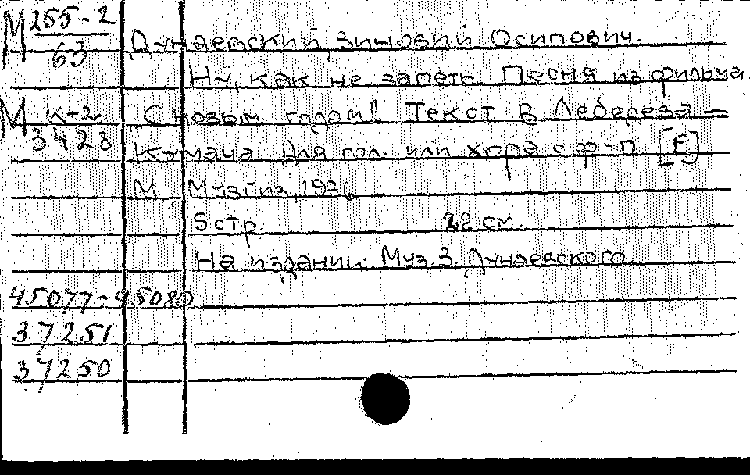 М 255-2
63
Дунаевский, Зиновий Осипович.
Ну, как не запеть. Песня из фильма
М К-2
3423
"С новым годом!" Текст В. Лебедева-
Кумача. Для гол. или хора с ф-п. [F]
М. Музгиз,
5 стр. 22 см.
На издании: Муз. З. Дунаевского
45077-45080
37251
37250